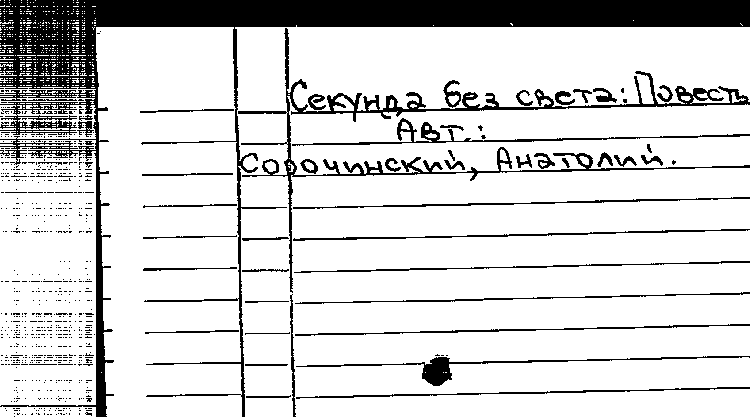 Секунда без света: Повесть
Авт.:
Сорочинский, Анатолий.